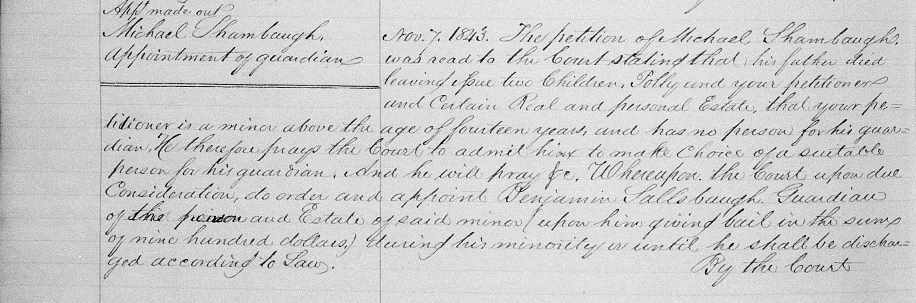 App't made out
Michael Shambaugh.
appointment of guardian
Nov. 7. 1843. The petition of Michael Shambaugh.
was read to the Court stating that his father died
leaving issue two Children, Polly and your petitioner
and Certain Real and personal Estate, that your pe=
titioner is a minor above the age of fourteen years, and has no person for his guar=
dian. He therefore prays the Court to admit him to make choice of a suitable
person for his guardian. And he will pray &c. Whereupon the Court upon due
Consideration, do order and appoint Benjamin Sallsbaugh Guardian
of the person and Estate of said minor (upon him giving bail in the sum
of nine hundred dollars,) during his minority or until he shall be dischar=
ged according to Law.
By the Court